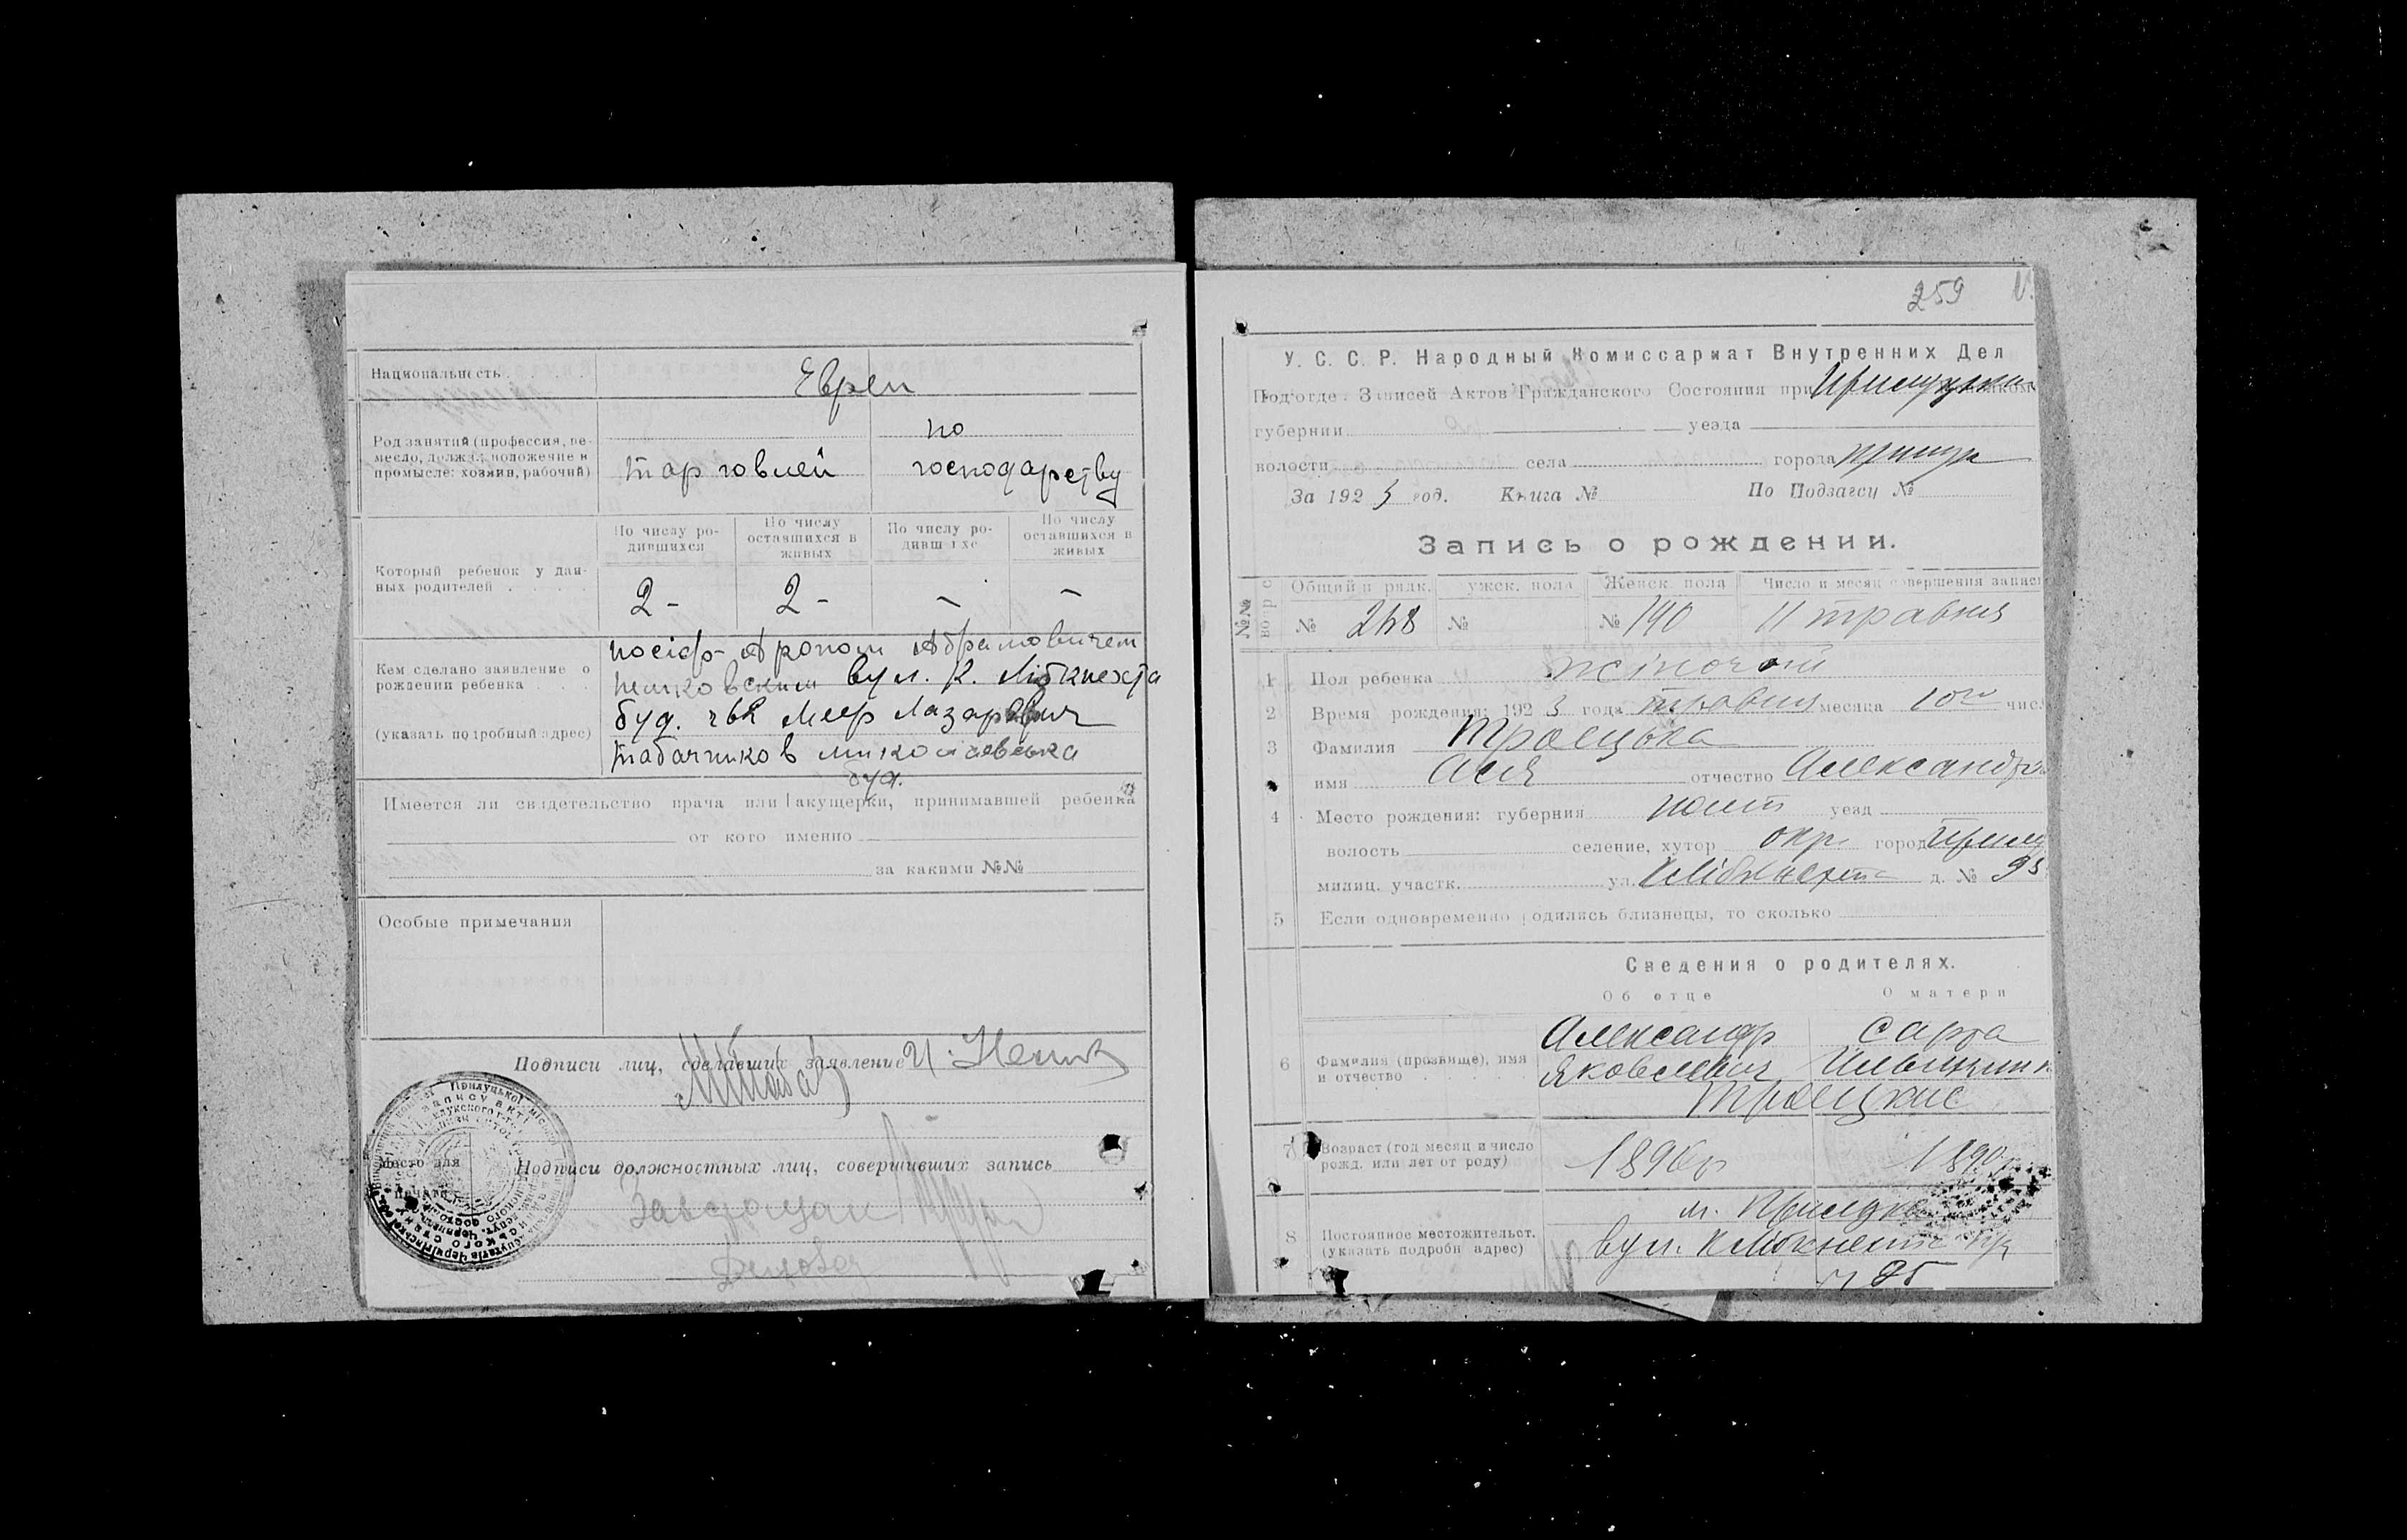 Национальность
Евреи
Род занятий (профессия, ре-
месло, должн. положение в
промысле: хозяин, рабочий)
торговлей
по
господарству
Который ребенок у дан-
ных родителей
По числу ро-
дившихся
По числу
оставшихся в
живых
По числу ро-
дивш хс
По числу
оставшихся в
живых
2 -
2 -
-
-
Кем сделано заявление о
рождении ребенка
(указать подробный адрес)
Абрамовичем
вул. К. Лібкнехта
буд. Меер Лазаревич
Табачников миколаевська
буд.
Имеется ли свидетельство врача или акущерки, принимавшей ребенка
от кого именно
за какими №№
Особые примечания
Подписи лиц, сделавших заявление
Место для
печати
Подписи должностных лиц, совершивших запись
259
У. С. С. Р. Народный Комиссариат Внутренних Дел
Подотде Записей Актов Гражданского Состояния при
губернии уезда
волости села города
За 192 3 год. Книга № По Подзагсу №
Запись о рождении.
№№
Общий п рядк. ужск. пола Женск. пола Число и месяц совершения запис
№ 248 № № 190 11 травня
1 Пол ребенка жіночий
2 Время рождения: 192 3 года травня месяца 10го чис
3 Фамилия Троецька
имя Ася отчество Александр
4 Место рождения: губерния Полт уезд
волость селение, хутор окр город Прилу
милиц. участк. ул. К Лібкнехта д. № 95
5 Если одновременно родились близнецы, то сколько
Сведения о родителях.
Об отце О матери
6 Фамилия (прозвище), имя
и отчество
Александр
Яковлевич
Сарра
Троецкие
7 Возраст (год месяц и число
рожд. или лет от роду)
1890
8 Постоянное местожительст.
(указать подробн адрес)
м. Прилуки
вул. К Лібкнехта